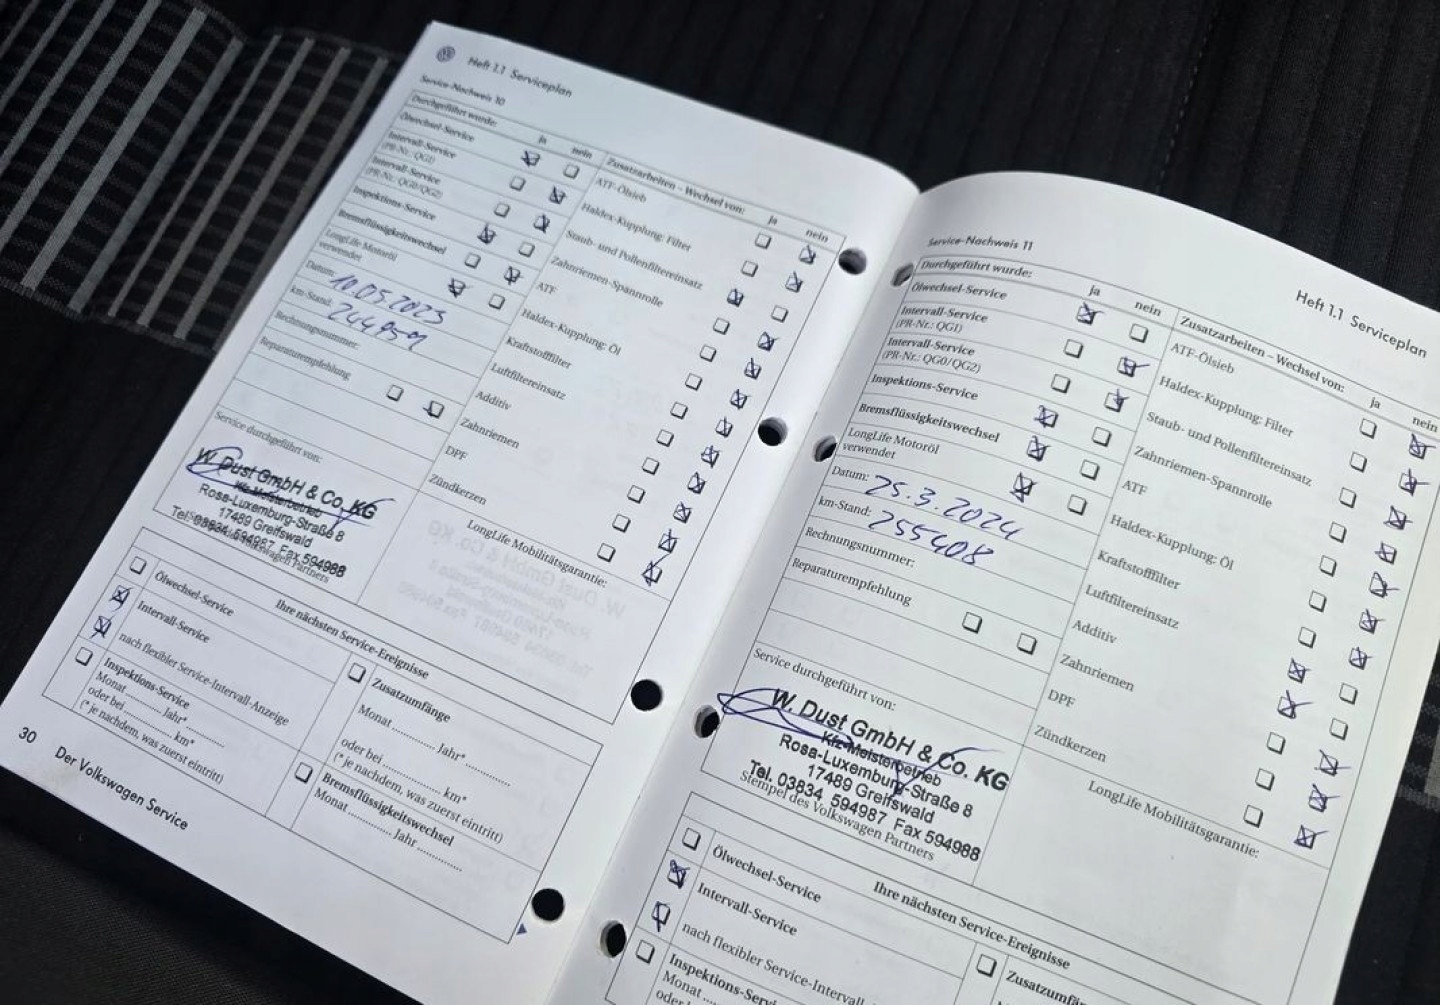 Heft 1.1 Serviceplan
Service-Nachweis 10
Durchgeführt wurde:
ja
nein
Ölwechsel-Service
Intervall-Service
(PR-Nr.: QG1)
Intervall-Service
(PR-Nr.: QG0/QG2)
Inspektions-Service
Bremsflüssigkeitswechsel
LongLife Motoröl
verwendet
Datum: 10.05.2023
km-Stand: 244959
Rechnungsnummer:
Reparaturempfehlung
Service durchgeführt von:
W. Dust GmbH & Co. KG
Kfz-Meisterbetrieb
Rosa-Luxemburg-Straße 8
17489 Greifswald
Tel. 03834 594987 Fax 594988
Stempel des Volkswagen Partners
Zusatzarbeiten – Wechsel von:
ja
nein
ATF-Ölsieb
Haldex-Kupplung: Filter
Staub- und Pollenfiltereinsatz
Zahnriemen-Spannrolle
ATF
Haldex-Kupplung: Öl
Kraftstofffilter
Luftfiltereinsatz
Additiv
Zahnriemen
DPF
Zündkerzen
LongLife Mobilitätsgarantie:
Ihre nächsten Service-Ereignisse
Ölwechsel-Service
Intervall-Service
nach flexibler Service-Intervall-Anzeige
Inspektions-Service
Monat ............ Jahr*............
oder bei ............ km*
(* je nachdem, was zuerst eintritt)
Zusatzumfänge
Monat ............ Jahr*............
oder bei ............ km*
(* je nachdem, was zuerst eintritt)
Bremsflüssigkeitswechsel
Monat ............ Jahr ............
30
Der Volkswagen Service
Heft 1.1 Serviceplan
Service-Nachweis 11
Durchgeführt wurde:
ja
nein
Ölwechsel-Service
Intervall-Service
(PR-Nr.: QG1)
Intervall-Service
(PR-Nr.: QG0/QG2)
Inspektions-Service
Bremsflüssigkeitswechsel
LongLife Motoröl
verwendet
Datum: 25.3.2024
km-Stand: 255408
Rechnungsnummer:
Reparaturempfehlung
Service durchgeführt von:
W. Dust GmbH & Co. KG
Kfz-Meisterbetrieb
Rosa-Luxemburg-Straße 8
17489 Greifswald
Tel. 03834 594987 Fax 594988
Stempel des Volkswagen Partners
Zusatzarbeiten – Wechsel von:
ja
nein
ATF-Ölsieb
Haldex-Kupplung: Filter
Staub- und Pollenfiltereinsatz
Zahnriemen-Spannrolle
ATF
Haldex-Kupplung: Öl
Kraftstofffilter
Luftfiltereinsatz
Additiv
Zahnriemen
DPF
Zündkerzen
LongLife Mobilitätsgarantie:
Ihre nächsten Service-Ereignisse
Ölwechsel-Service
Intervall-Service
nach flexibler Service-Intervall-
Inspektions-Servi
Monat
oder b
Zusatzumfä